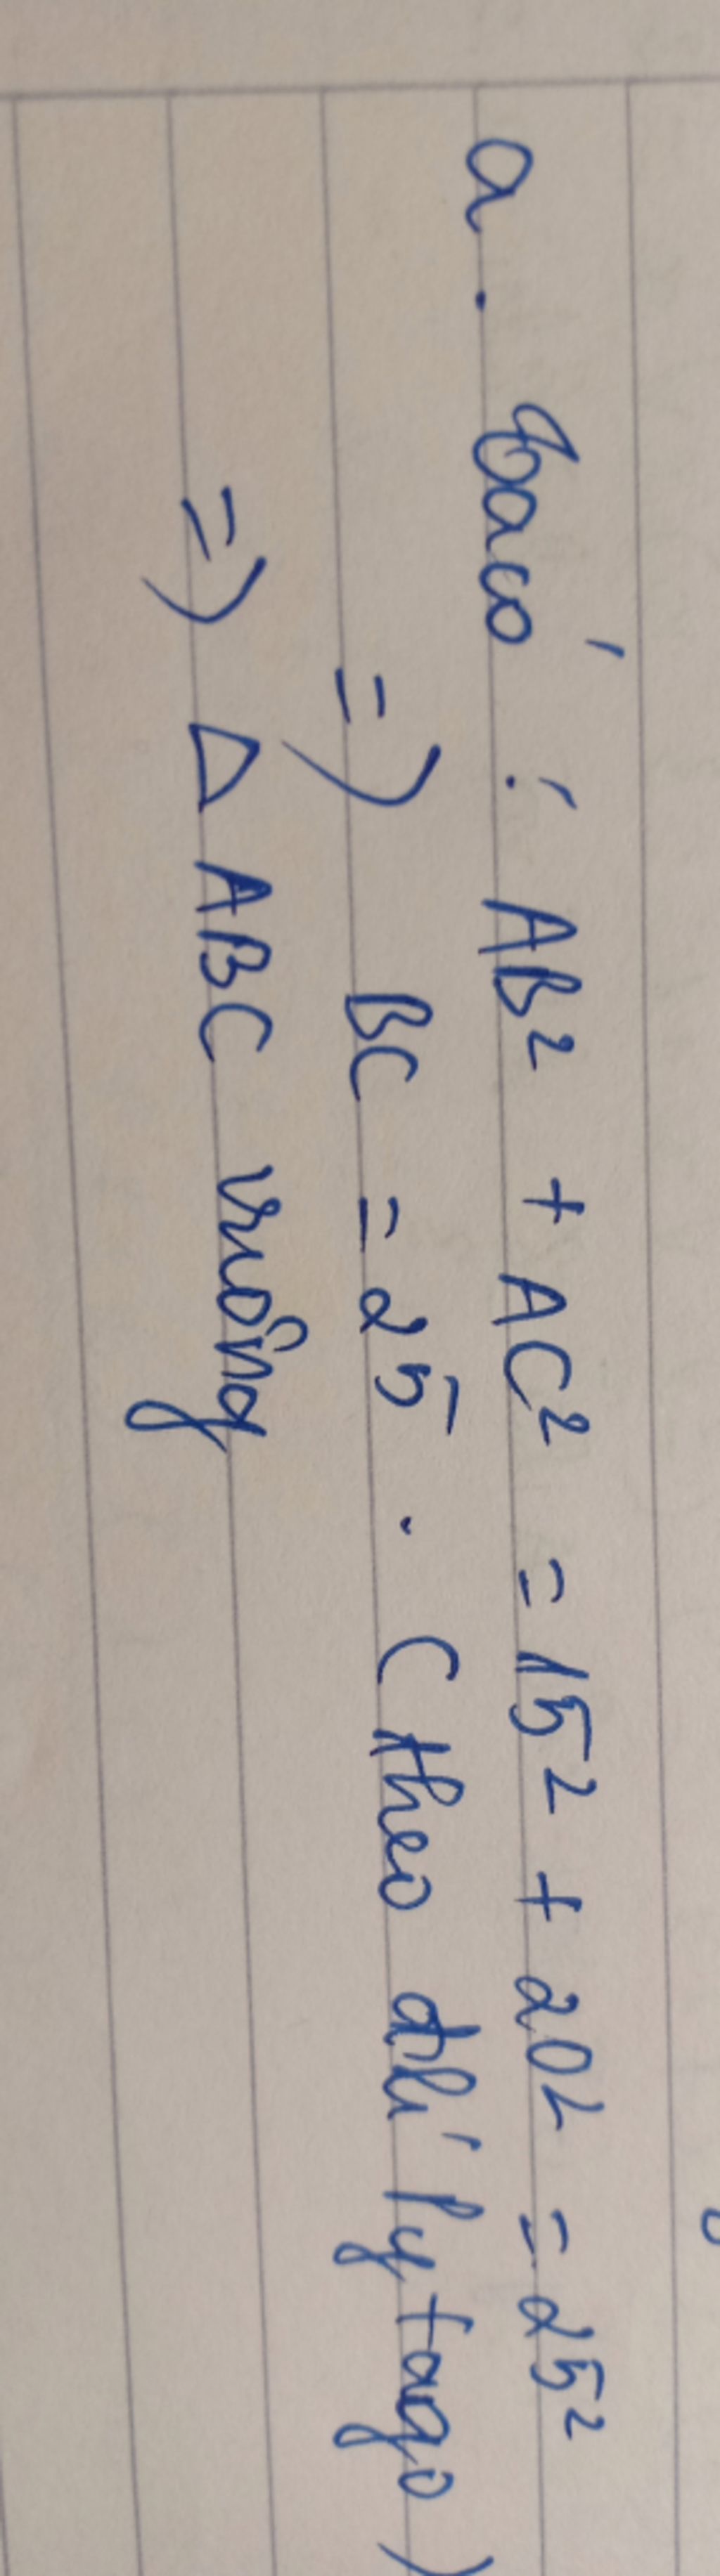 a. Ta có : AB² + AC² = 15² + 20² = 25²
=) BC = 25 . ( theo đlí Pytago )
=) Δ ABC vuông